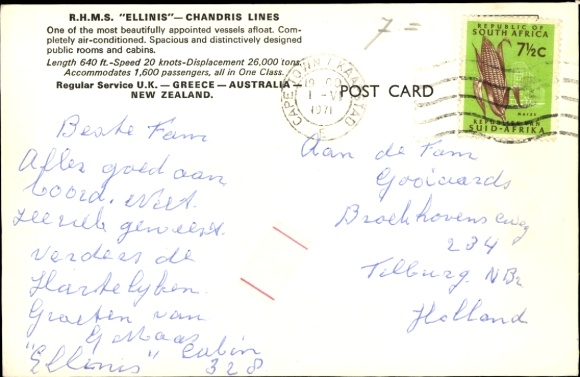 R.H.M.S. "ELLINIS"— CHANDRIS LINES
One of the most beautifully appointed vessels afloat. Com-
pletely air-conditioned. Spacious and distinctively designed
public rooms and cabins.
Length 640 ft.-Speed 20 knots-Displacement 26,000 tons.
Accommodates 1,600 passengers, all in One Class.
Regular Service U.K. — GREECE — AUSTRALIA —
NEW ZEALAND.
7=
REPUBLIC OF
SOUTH AFRICA
7½c
MAIZE
REPUBLIEK VAN
SUID-AFRIKA
CAPE TOWN / KAAPSTAD
1 - VI
1971
POST CARD
Beste Fam
Alles goed aan
boord. Niet
zeeziek geweest.
Verders de
Hartelyken
Groeten van
G Maas
"Ellinis" Cabin
328
Aan de Fam
Gooiaards
Broekhovenseweg
234
Tilburg NBr
Holland